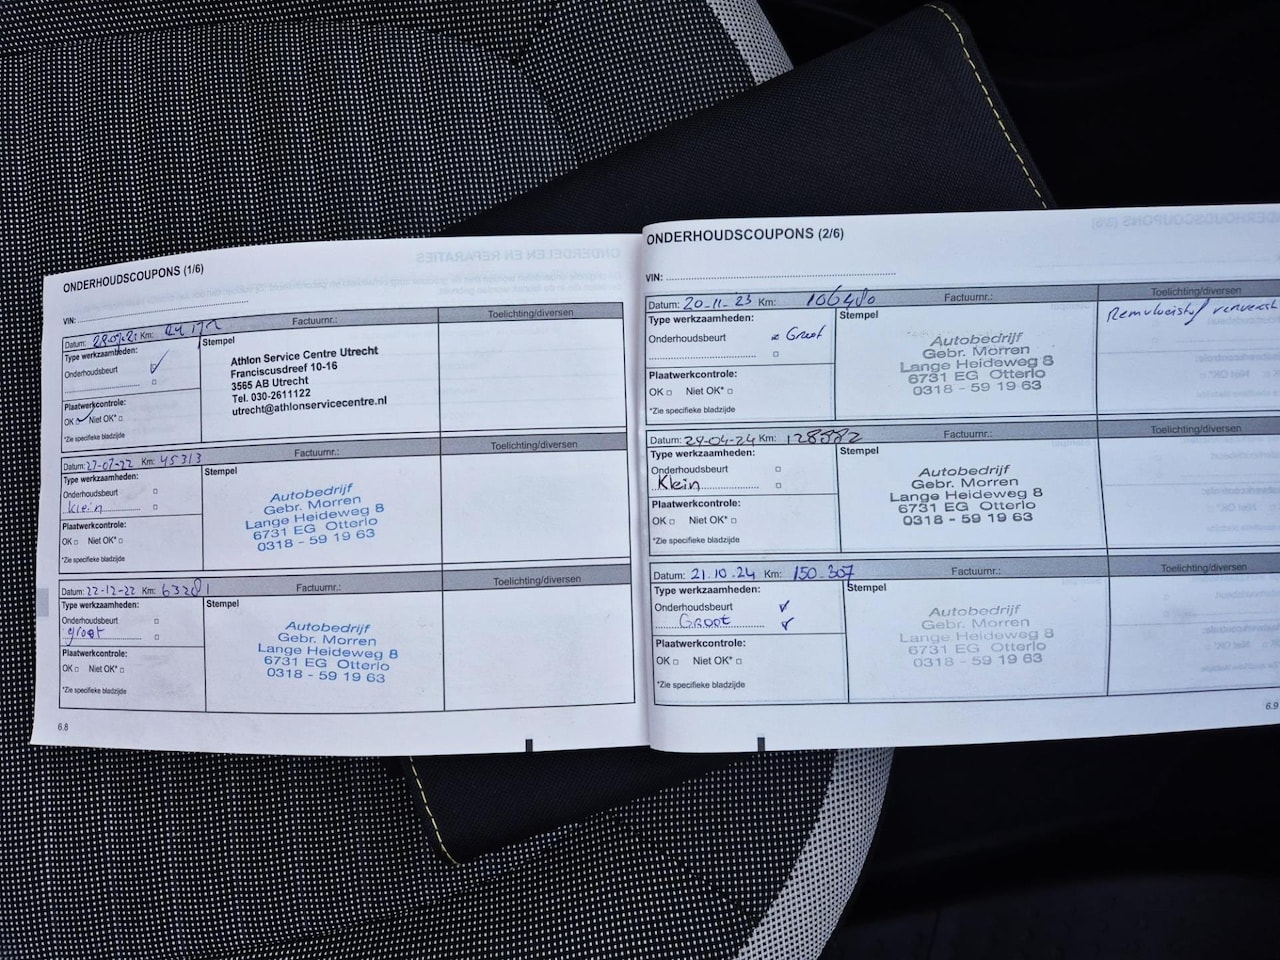 ONDERHOUDSCOUPONS (1/6)
VIN:
Datum: Km: Factuurnr.: Toelichting/diversen
Type werkzaamheden:
Onderhoudsbeurt
Plaatwerkcontrole:
OK Niet OK*
*Zie specifieke bladzijde
Stempel
Athlon Service Centre Utrecht
Franciscusdreef 10-16
3565 AB Utrecht
Tel. 030-2611122
utrecht@athlonservicecentre.nl
Datum: 27-07-22 Km: 45313 Factuurnr.: Toelichting/diversen
Type werkzaamheden:
Onderhoudsbeurt
klein
Plaatwerkcontrole:
OK Niet OK*
*Zie specifieke bladzijde
Stempel
Autobedrijf
Gebr. Morren
Lange Heideweg 8
6731 EG Otterlo
0318 - 59 19 63
Datum: 22-12-22 Km: Factuurnr.: Toelichting/diversen
Type werkzaamheden:
Onderhoudsbeurt
groot
Plaatwerkcontrole:
OK Niet OK*
*Zie specifieke bladzijde
Stempel
Autobedrijf
Gebr. Morren
Lange Heideweg 8
6731 EG Otterlo
0318 - 59 19 63
6.8
ONDERHOUDSCOUPONS (2/6)
VIN:
Datum: 20-11-'23 Km: 106480 Factuurnr.: Toelichting/diversen
Type werkzaamheden:
Onderhoudsbeurt Groot
Plaatwerkcontrole:
OK Niet OK*
*Zie specifieke bladzijde
Stempel
Autobedrijf
Gebr. Morren
Lange Heideweg 8
6731 EG Otterlo
0318 - 59 19 63
Remvloeistof
Datum: 29-04-24 Km: Factuurnr.: Toelichting/diversen
Type werkzaamheden:
Onderhoudsbeurt
Klein
Plaatwerkcontrole:
OK Niet OK*
*Zie specifieke bladzijde
Stempel
Autobedrijf
Gebr. Morren
Lange Heideweg 8
6731 EG Otterlo
0318 - 59 19 63
Datum: 21.10.24 Km: 150.307 Factuurnr.: Toelichting/diversen
Type werkzaamheden:
Onderhoudsbeurt
Groot
Plaatwerkcontrole:
OK Niet OK*
*Zie specifieke bladzijde
Stempel
Autobedrijf
Gebr. Morren
Lange Heideweg 8
6731 EG Otterlo
0318 - 59 19 63
6.9